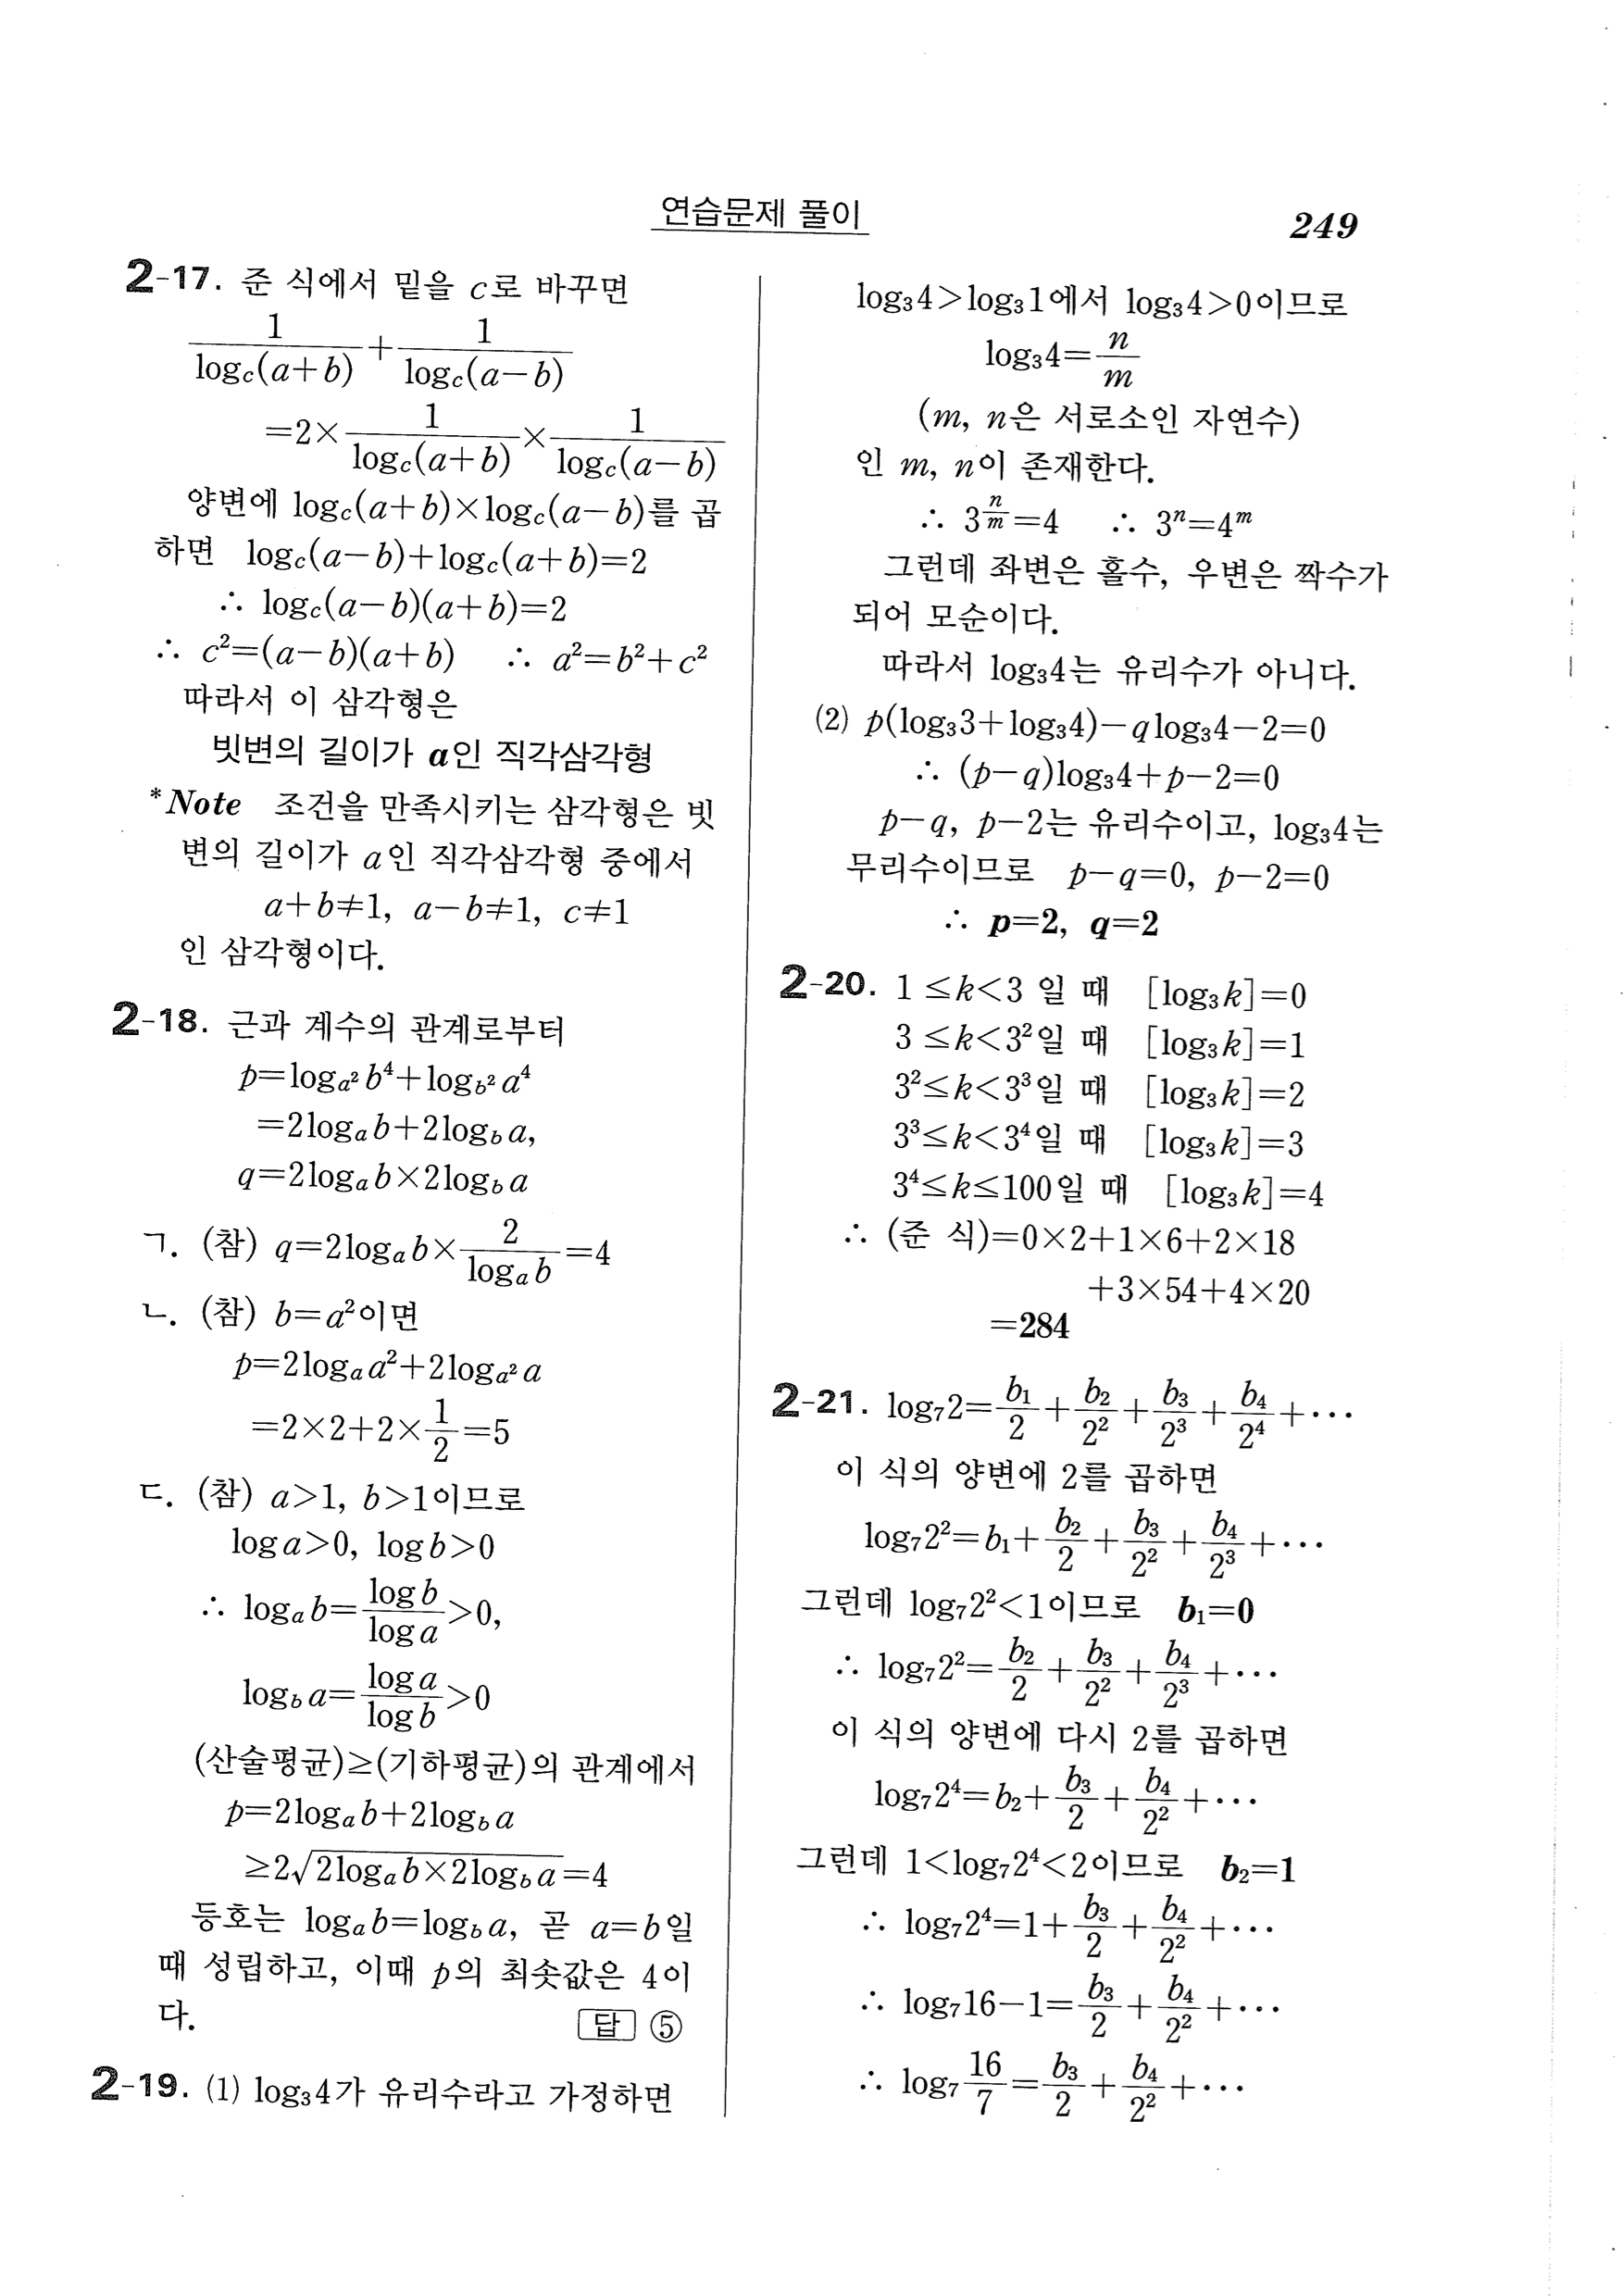 연습문제 풀이
249
2-17. 준 식에서 밑을 c로 바꾸면
1/log_c(a+b) + 1/log_c(a−b)
=2× 1/log_c(a+b) × 1/log_c(a−b)
양변에 log_c(a+b)×log_c(a−b)를 곱
하면 log_c(a−b)+log_c(a+b)=2
∴ log_c(a−b)(a+b)=2
∴ c²=(a−b)(a+b) ∴ a²=b²+c²
따라서 이 삼각형은
빗변의 길이가 a인 직각삼각형
*Note 조건을 만족시키는 삼각형은 빗
변의 길이가 a인 직각삼각형 중에서
a+b≠1, a−b≠1, c≠1
인 삼각형이다.
2-18. 근과 계수의 관계로부터
p=log_{a²} b⁴+log_{b²} a⁴
=2log_a b+2log_b a,
q=2log_a b×2log_b a
ㄱ. (참) q=2log_a b× 2/log_a b =4
ㄴ. (참) b=a²이면
p=2log_a a²+2log_{a²} a
=2×2+2× 1/2 =5
ㄷ. (참) a>1, b>1이므로
log a>0, log b>0
∴ log_a b= log b/log a >0,
log_b a= log a/log b >0
(산술평균)≥(기하평균)의 관계에서
p=2log_a b+2log_b a
≥2√(2log_a b×2log_b a)=4
등호는 log_a b=log_b a, 곧 a=b일
때 성립하고, 이때 p의 최솟값은 4이
다. 답 ⑤
2-19. (1) log₃4가 유리수라고 가정하면
log₃4>log₃1에서 log₃4>0이므로
log₃4= n/m
(m, n은 서로소인 자연수)
인 m, n이 존재한다.
∴ 3^{n/m}=4 ∴ 3ⁿ=4ᵐ
그런데 좌변은 홀수, 우변은 짝수가
되어 모순이다.
따라서 log₃4는 유리수가 아니다.
(2) p(log₃3+log₃4)−qlog₃4−2=0
∴ (p−q)log₃4+p−2=0
p−q, p−2는 유리수이고, log₃4는
무리수이므로 p−q=0, p−2=0
∴ p=2, q=2
2-20. 1 ≤k<3 일 때 [log₃k]=0
3 ≤k<3²일 때 [log₃k]=1
3²≤k<3³일 때 [log₃k]=2
3³≤k<3⁴일 때 [log₃k]=3
3⁴≤k≤100일 때 [log₃k]=4
∴ (준 식)=0×2+1×6+2×18
+3×54+4×20
=284
2-21. log₇2= b₁/2 + b₂/2² + b₃/2³ + b₄/2⁴ +⋯
이 식의 양변에 2를 곱하면
log₇2²=b₁+ b₂/2 + b₃/2² + b₄/2³ +⋯
그런데 log₇2²<1이므로 b₁=0
∴ log₇2²= b₂/2 + b₃/2² + b₄/2³ +⋯
이 식의 양변에 다시 2를 곱하면
log₇2⁴=b₂+ b₃/2 + b₄/2² +⋯
그런데 1<log₇2⁴<2이므로 b₂=1
∴ log₇2⁴=1+ b₃/2 + b₄/2² +⋯
∴ log₇16−1= b₃/2 + b₄/2² +⋯
∴ log₇ 16/7 = b₃/2 + b₄/2² +⋯